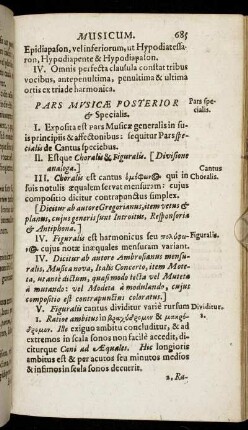 MUSICUM. 685
Epidiapason, vel inferiorum, ut Hypodiatessa-
ron, Hypodiapente & Hypodiapason.
IV. Omnis perfecta clausula constat tribus
vocibus, antepenultima, penultima & ultima
ortis ex triade harmonica.
PARS MVSICÆ POSTERIOR
& Specialis.
Pars spe-
cialis.
I. Exposita est pars Musicæ generalis in su-
is principiis & affectionibus: sequitur Pars spe-
cialis de Cantus speciebus.
II. Estque Choralis & Figuralis. [Divisione
analoga.]
III. Choralis est cantus qui in
Cantus
Choralis.
suis notulis æqualem servat mensuram: cujus
compositio dicitur contrapunctus simplex.
[Dicitur ab autore Gregorianus, item vetus &
planus, cujus generis sunt Introitus, Responsoria
& Antiphona.]
IV. Figuralis est harmonicus seu
Figuralis.
cujus notæ inæquales mensuram variant.
IV. Dicitur ab autore Ambrosianus mensu-
ralis, Musica nova, Italis Concerto, item Mote-
ta, ut ante dictum, quasi modo tecta vel Muteta
à mutando: vel Modeta à modulando, cujus
compositio est contrapunctus coloratus.]
V. Figuralis cantus dividitur variè rursum
Dividitur.
1. Ratione ambitus in βραχύδρομον & μακρό-
1.
δρομον. Iste exiguo ambitu concluditur, & ad
extremos in scala sonos non facilè accedit, di-
citurque Cani ad Æquales. Hic longioris
ambitus est & per acutos seu minutos medios
& infimos in scala sonos decurrit.
2. Ra-